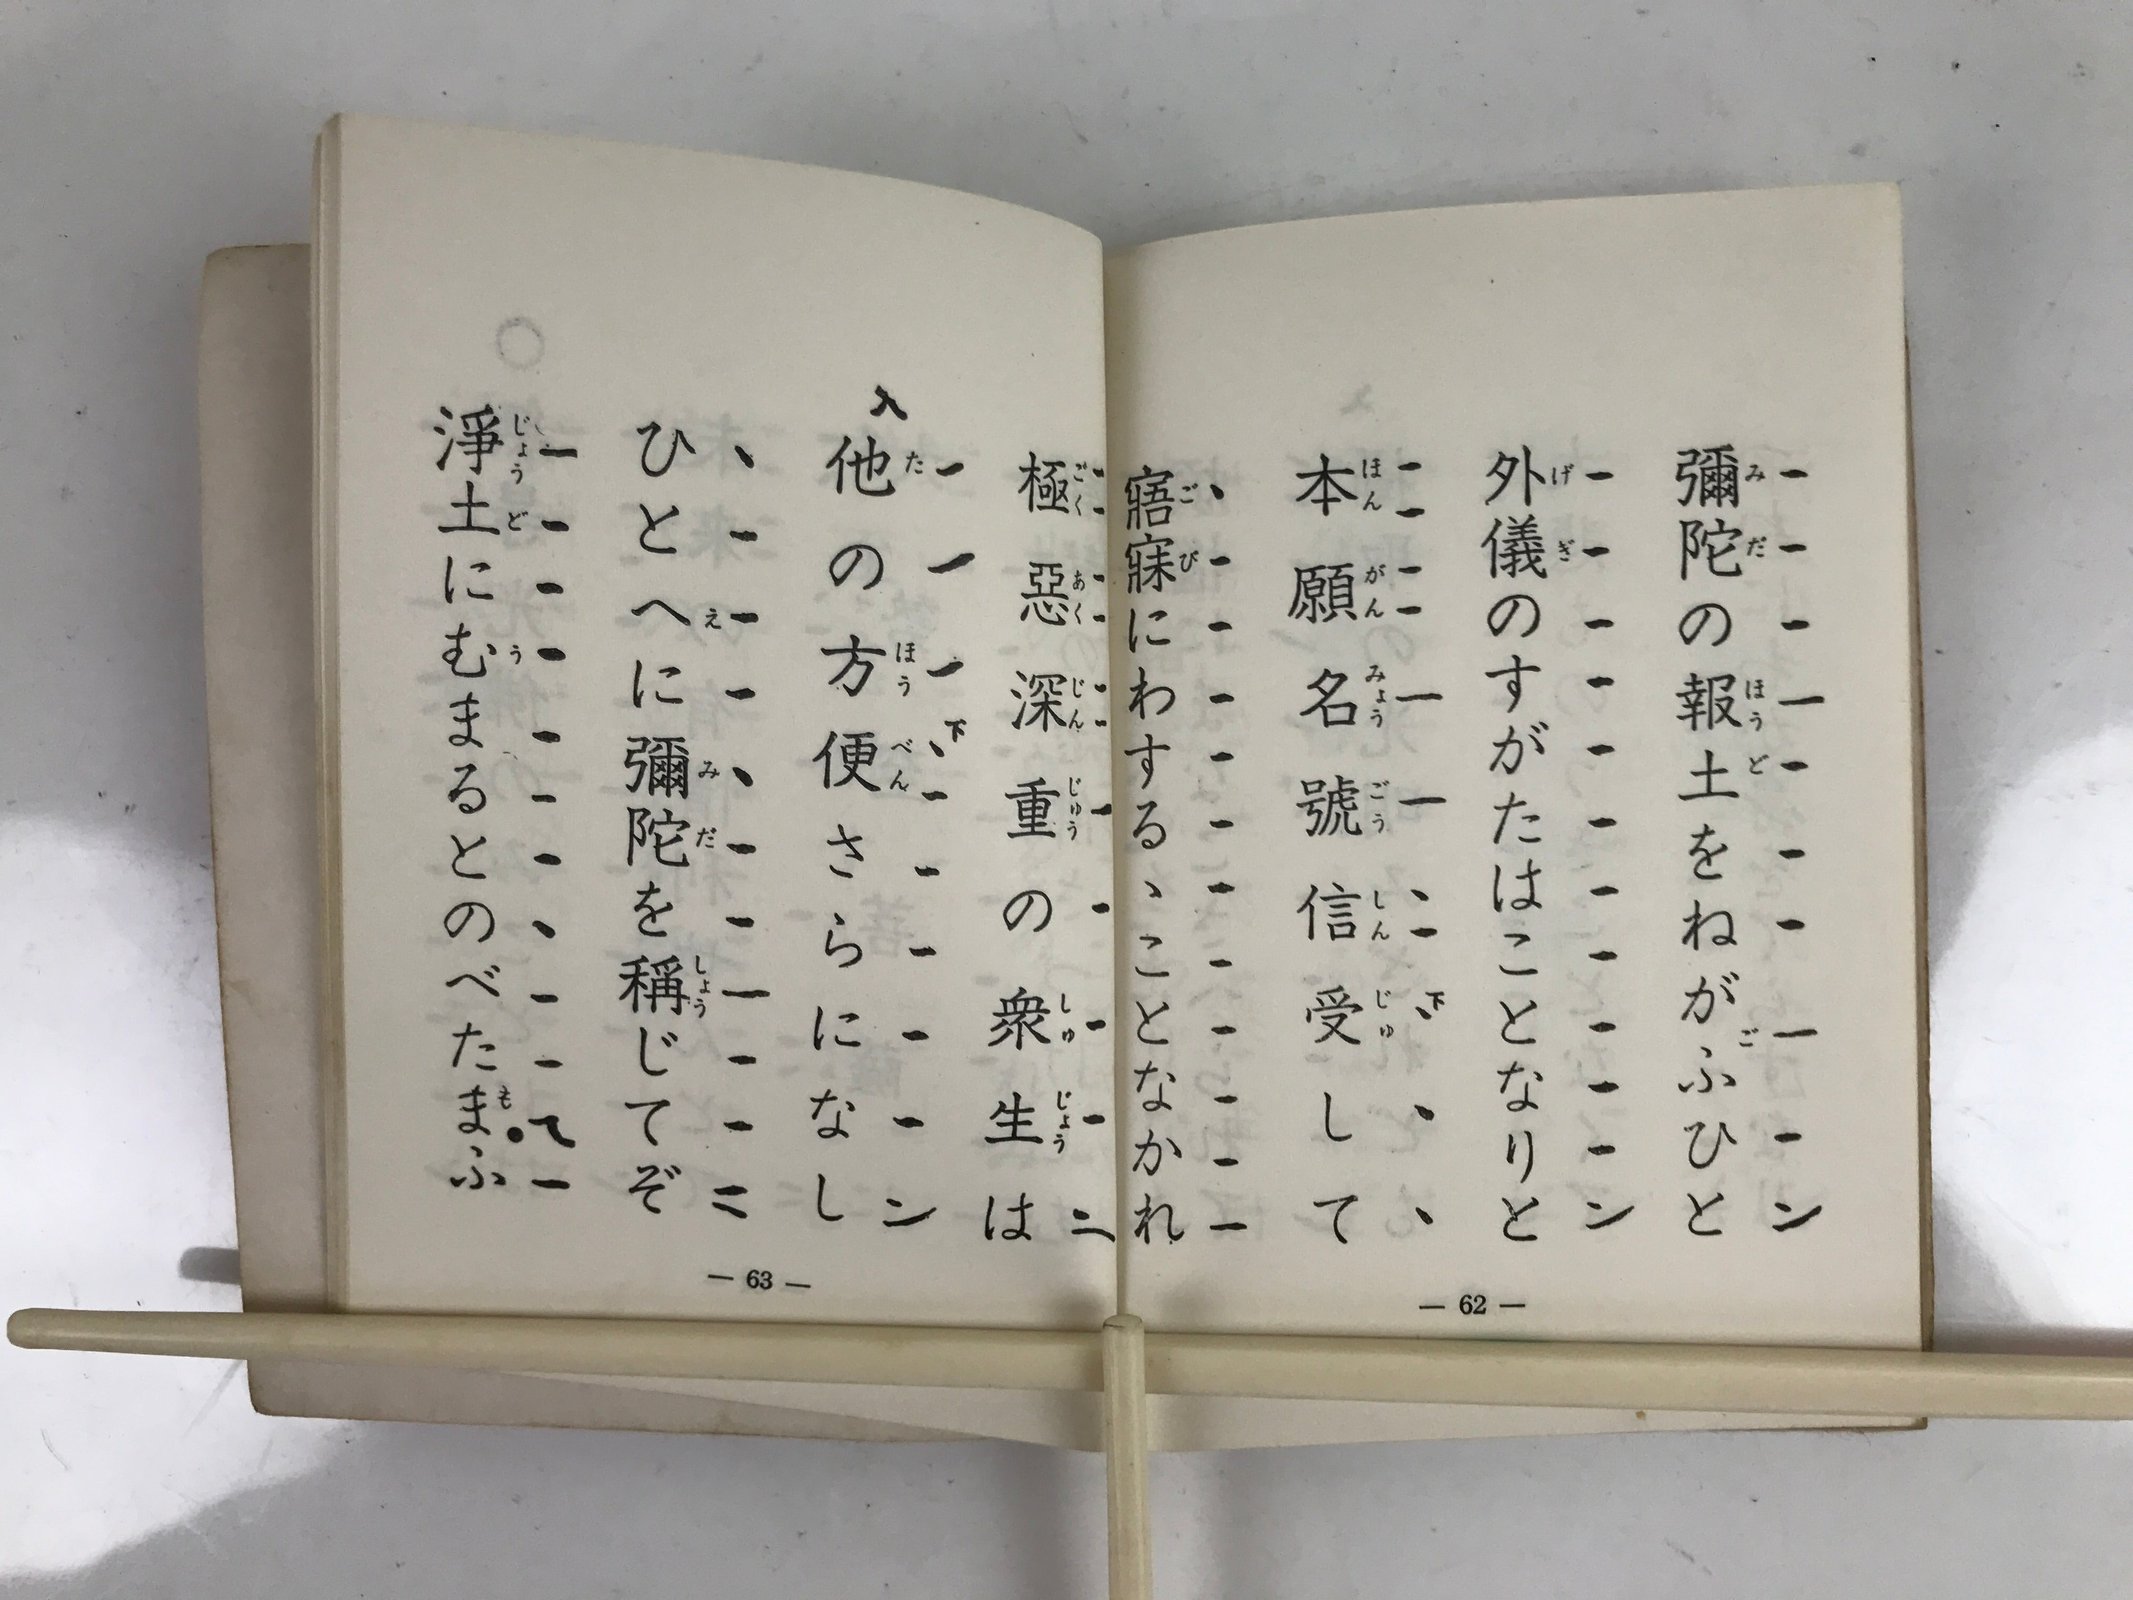 彌陀の報土をねがふひと
外儀のすがたはことなりと
本願名號信受して
寤寐にわするゝことなかれ
— 62 —
極惡深重の衆生は
入
他の方便さらになし
ひとへに彌陀を稱じてぞ
淨土にむまるとのべたまふ
— 63 —